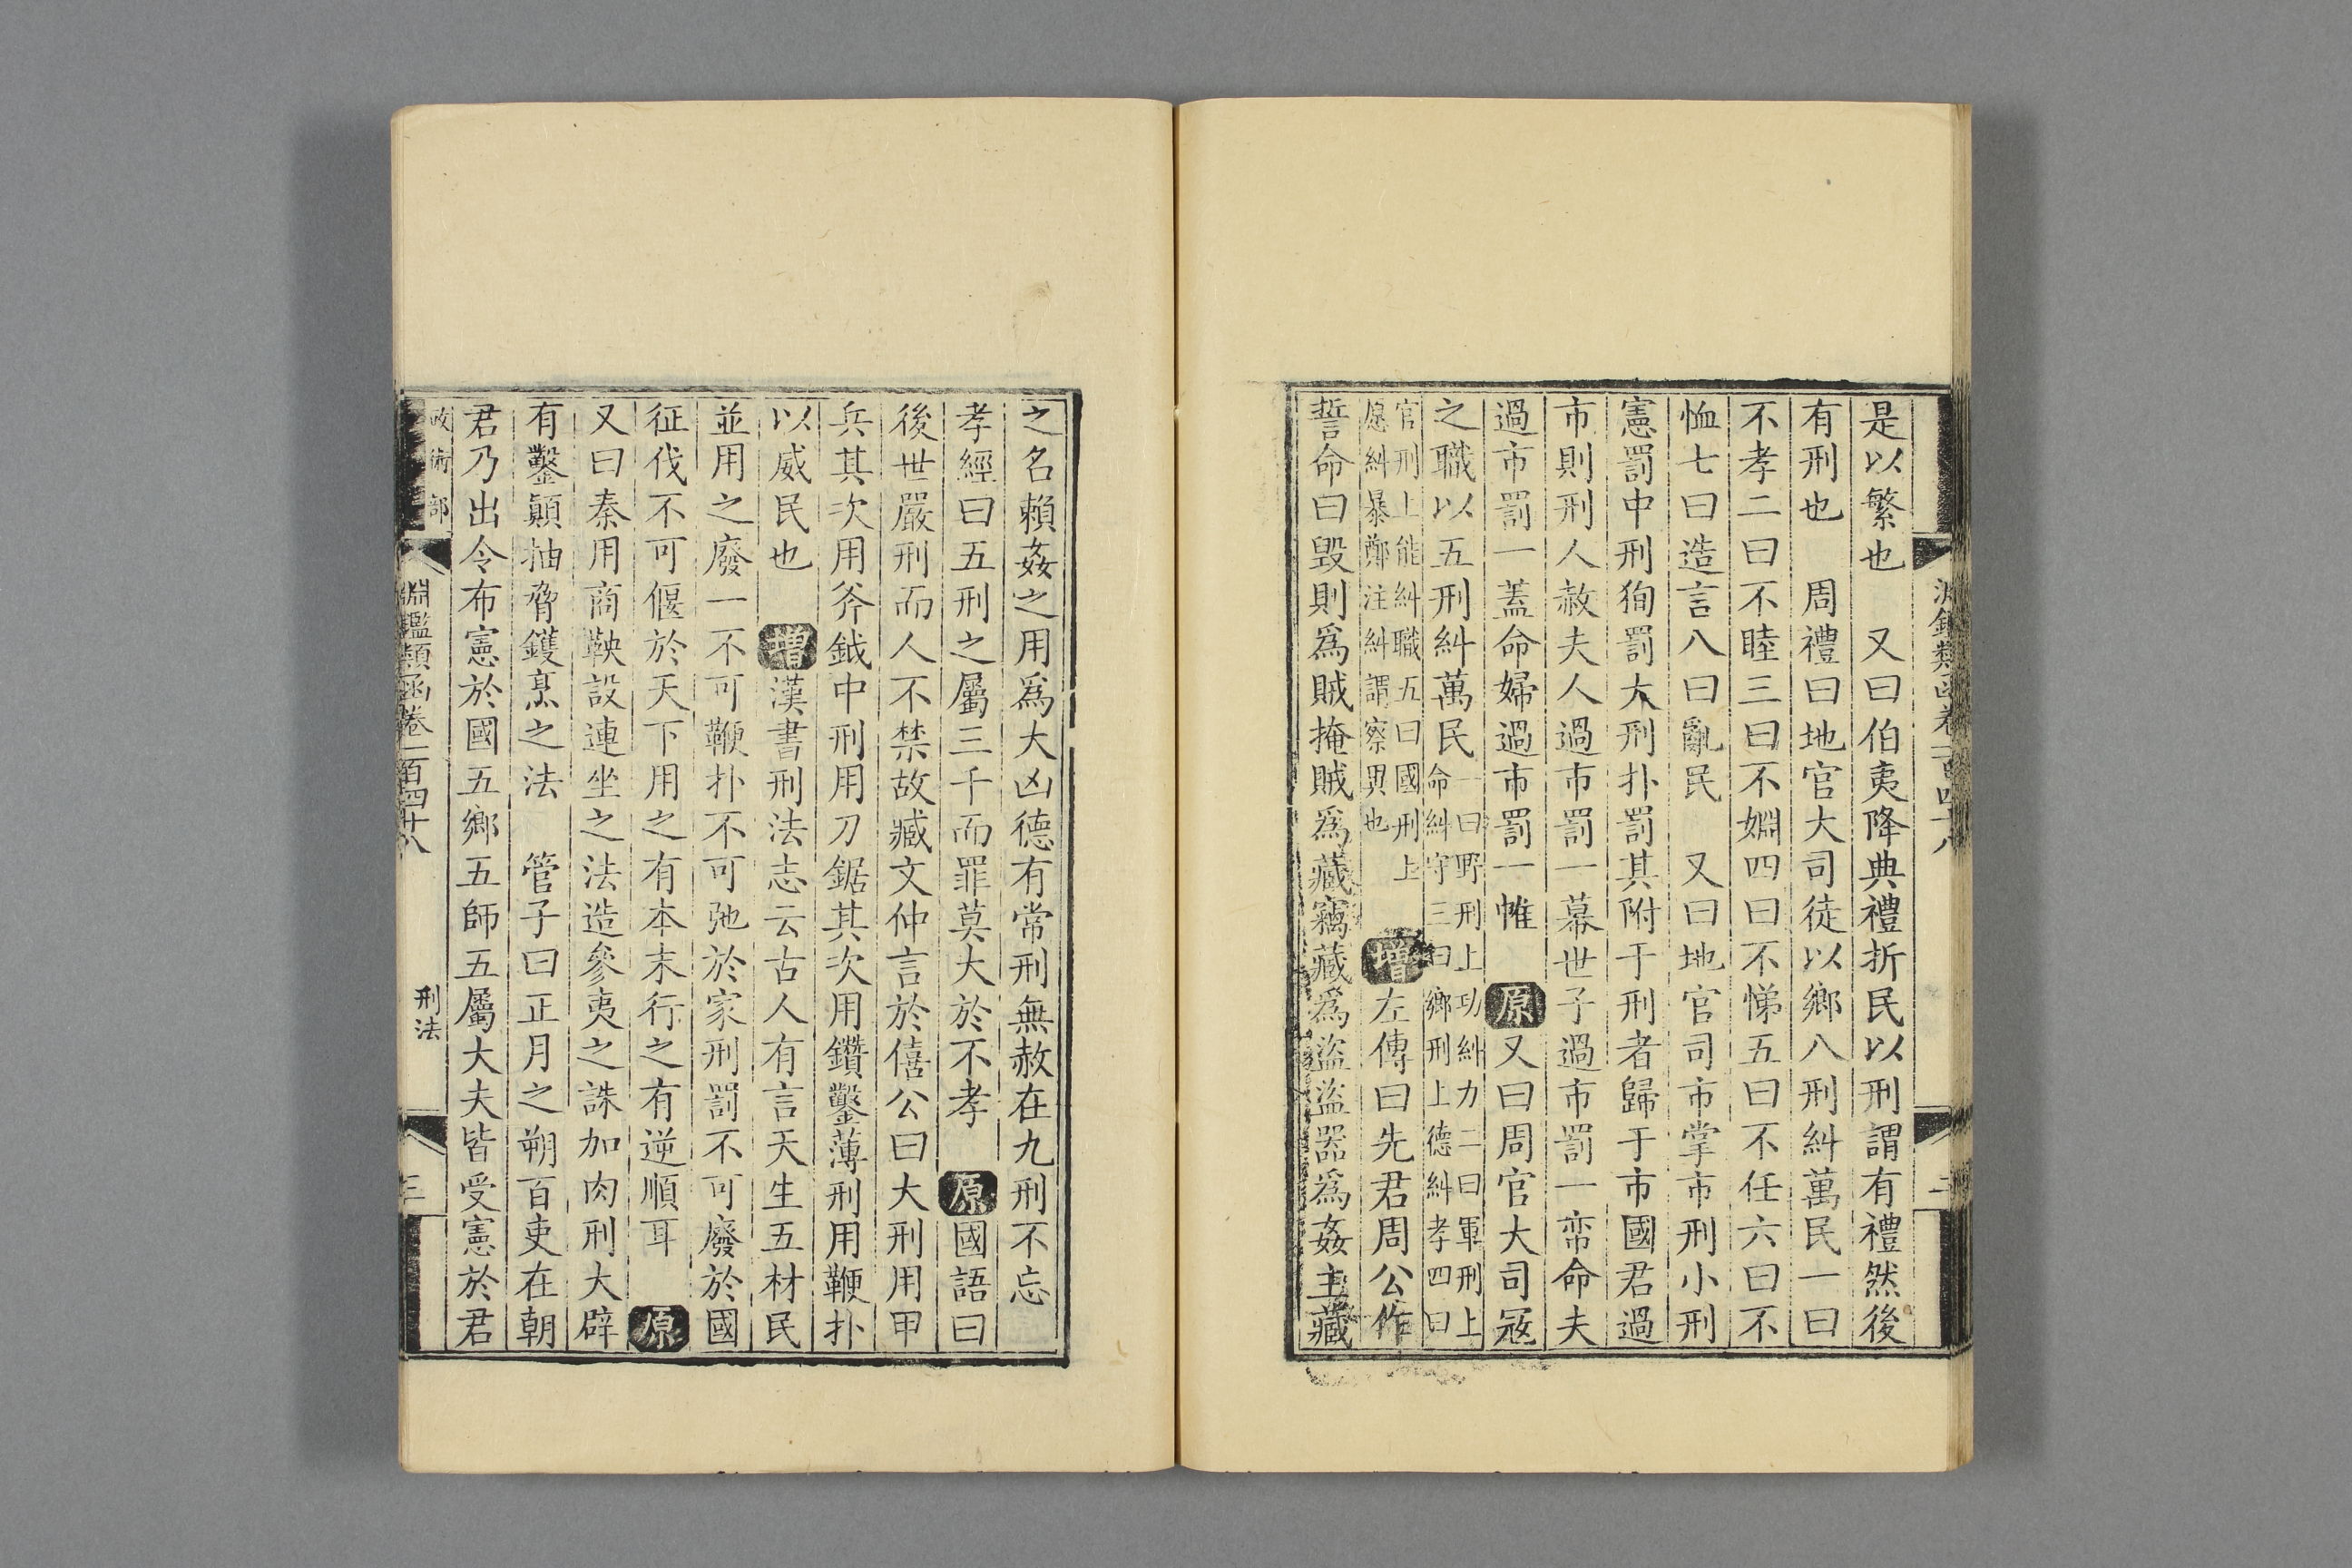 是以繁也　又曰伯夷降典禮折民以刑謂有禮然後
有刑也　周禮曰地官大司徒以鄉八刑糾萬民一曰
不孝二曰不睦三曰不婣四曰不悌五曰不任六曰不
恤七曰造言八曰亂民　又曰地官司市掌市刑小刑
憲罰中刑狥罰大刑扑罰其附于刑者歸于市國君過
市則刑人赦夫人過市罰一幕世子過市罰一帟命夫
過市罰一蓋命婦過市罰一帷　原又曰周官大司寇
之職以五刑糾萬民一曰野刑上功糾力二曰軍刑上命糾守三曰鄉刑上德糾孝四曰
官刑上能糾職五曰國刑上愿糾暴鄭注糾謂察異也　增左傳曰先君周公作
誓命曰毀則爲賊掩賊爲藏竊藏爲盜盜器爲姦主藏
之名賴姦之用爲大凶德有常刑無赦在九刑不忘
孝經曰五刑之屬三千而罪莫大於不孝　原國語曰
後世嚴刑而人不禁故臧文仲言於僖公曰大刑用甲
兵其次用斧鉞中刑用刀鋸其次用鑽鑿薄刑用鞭扑
以威民也　增漢書刑法志云古人有言天生五材民
並用之廢一不可鞭扑不可弛於家刑罰不可廢於國
征伐不可偃於天下用之有本末行之有逆順耳　原
又曰秦用商鞅設連坐之法造參夷之誅加肉刑大辟
有鑿顚抽脅鑊烹之法　管子曰正月之朔百吏在朝
君乃出令布憲於國五鄉五師五屬大夫皆受憲於君
政術部　淵鑑類函卷一百四十八　刑法　三